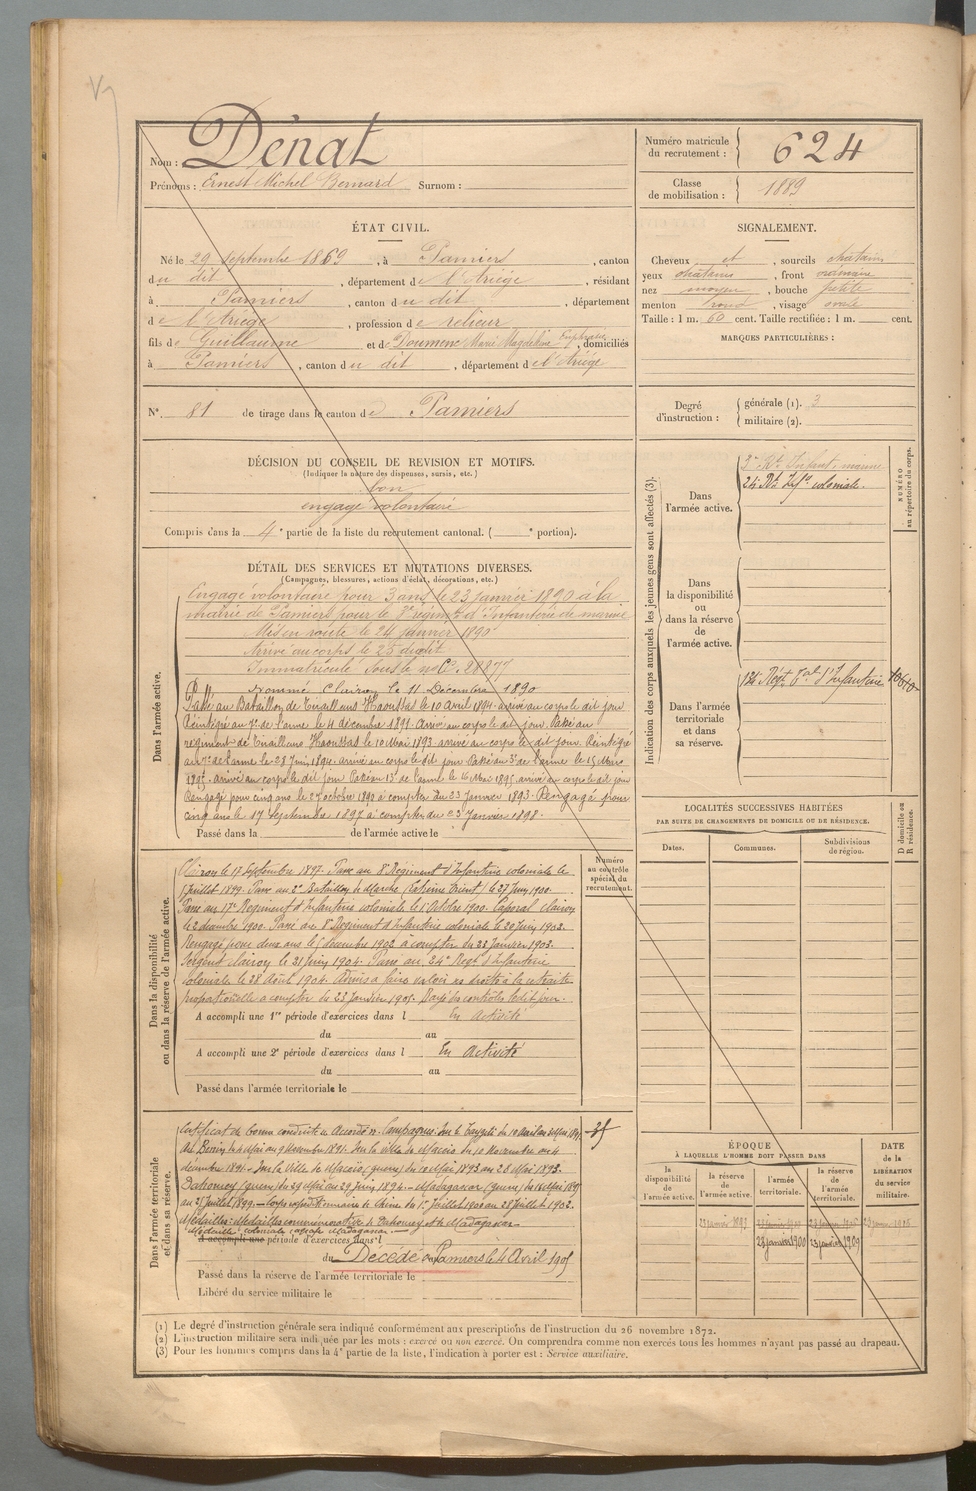 Nom : Dénat
Prénoms : Ernest Michel Bernard Surnom :
Numéro matricule
du recrutement : 624
Classe
de mobilisation : 1889
ÉTAT CIVIL.
Né le 29 septembre 1869, à Pamiers, canton
du dit, département de l'Ariège, résidant
à Pamiers, canton du dit, département
de l'Ariège, profession de relieur
fils de Guillaume et de Doumenc Marie Magdeleine Euphrasie, domiciliés
à Pamiers, canton du dit, département de l'Ariège
SIGNALEMENT.
Cheveux et, sourcils chatains
yeux chatains, front ordinaire
nez moyen, bouche petite
menton rond, visage ovale
Taille : 1 m. 60 cent. Taille rectifiée : 1 m. cent.
MARQUES PARTICULIÈRES :
N° 81 de tirage dans le canton de Pamiers
Degré
d'instruction : générale (1). 3
militaire (2).
DÉCISION DU CONSEIL DE REVISION ET MOTIFS.
(Indiquer la nature des dispenses, sursis, etc.)
bon
engagé volontaire
Compris dans la 4e partie de la liste du recrutement cantonal. ( e portion).
DÉTAIL DES SERVICES ET MUTATIONS DIVERSES.
(Campagnes, blessures, actions d'éclat, décorations, etc.)
Dans l'armée active.
Engagé volontaire pour 3 ans le 23 janvier 1890 à la
mairie de Pamiers pour le régimt d'Infanterie de marine
Mis en route le 24 janvier 1890
Arrivé au corps le 25 du dit
Immatriculé sous le n° C. 20877
Nommé Clairon le 11 Décembre 1890
Passé au Bataillon de Tirailleurs Haoussas le 10 Avril 1891 arrivé au corps le dit jour
Réintégré au 7e de l'arme le 4 décembre 1891. arrivé au corps le dit jour. Passé au
régiment de Tirailleurs Haoussas le 10 Mai 1893 arrivé au corps le dit jour. Réintégré
au de l'arme le 28 Juin 1894. arrivé au corps le dit jour Passé au 3e de l'arme le 15 Mars
1895. arrivé au corps le dit jour Passé au 13e de l'arme le 16 Mai 1895 arrivé au corps le dit jour
Rengagé pour cinq ans le octobre 1892 à compter du 23 Janvier 1893. Rengagé pour
cinq ans le 17 Septembre 1897 à compter du 23 Janvier 1898.
Passé dans la de l'armée active le
Dans la disponibilité
ou dans la réserve de l'armée active.
Numéro
au contrôle
spécial du
recrutement.
Clairon le 17 Septembre 1897. Passé au 8e Régiment d'Infanterie coloniale le
Juillet 1899. Passé au 2e Bataillon de Marche (Extrême Orient) le 27 Juin 1900.
Passé au 17e Régiment d'Infanterie coloniale le 1er Octobre 1900. Caporal clairon
le 2 décembre 1900. Passé au 8e Régiment d'Infanterie coloniale le 20 Juin 1902.
Rengagé pour deux ans le décembre 1902 à compter du 23 Janvier 1903.
Sergent clairon le 21 Juin 1904. Passé au 24e Régt d'Infanterie
coloniale le 28 Août 1904. Admis à faire valoir ses droits à la retraite
proportionnelle à compter du 23 Janvier 1905. Rayé des contrôles le dit jour.
A accompli une 1re période d'exercices dans l En activité
du au
A accompli une 2e période d'exercices dans l En Activité
du au
Passé dans l'armée territoriale le
Dans l'armée territoriale
et dans sa réserve.
Certificat de bonne conduite Accordé. Campagnes:
du Bénin du 4 Mai au 9 Novembre 1891. Sur la ville de Maceio du 10 Novembre au 4
décembre 1891. Sur la Ville de Maceio (guerre) du 10 Mai 1893 au 28 Mai 1893.
Dahomey (guerre) du 29 Mai au 29 Juin 1894. Madagascar (guerre) du
au Juillet 1899. Corps expéditionnaire de Chine du 1er Juillet 1900 au 28 Juillet 1902.
Médailles: Médailles commémoratives du Dahomey et de Madagascar
Médaille coloniale agrafe Madagascar
A accompli une période d'exercices dans l
du Décédé à Pamiers le 4 Avril 1905
Passé dans la réserve de l'armée territoriale le
Libéré du service militaire le
Indication des corps auxquels les jeunes gens sont affectés (3).
NUMÉRO
au répertoire du corps.
Dans
l'armée active.
Rt Infant. marine
24e Rt Infie coloniale.
Dans
la disponibilité
ou
dans la réserve
de
l'armée active.
Dans l'armée
territoriale
et dans
sa réserve.
134 Régt Tal d'Infanterie
LOCALITÉS SUCCESSIVES HABITÉES
PAR SUITE DE CHANGEMENTS DE DOMICILE OU DE RÉSIDENCE.
D domicile ou
R résidence.
Dates. Communes. Subdivisions
de région.
ÉPOQUE
À LAQUELLE L'HOMME DOIT PASSER DANS
la
disponibilité
de
l'armée active.
la réserve
de
l'armée active.
l'armée
territoriale.
la réserve
de
l'armée
territoriale.
DATE
de la
LIBÉRATION
du service
militaire.
23 janvier 1893
23 janvier 1900 23 janvier 1909
(1) Le degré d'instruction générale sera indiqué conformément aux prescriptions de l'instruction du 26 novembre 1872.
(2) L'instruction militaire sera indiquée par les mots : exercé ou non exercé. On comprendra comme non exercés tous les hommes n'ayant pas passé au drapeau.
(3) Pour les hommes compris dans la 4e partie de la liste, l'indication à porter est : Service auxiliaire.